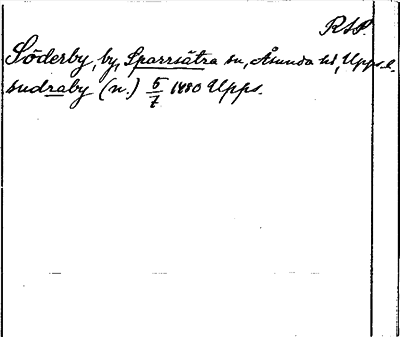 RSP.
Söderby, by, Sparrsätra sn, Åsunda hd, Upps. l.
sudraby (n.) 5/7 1480 Upps.